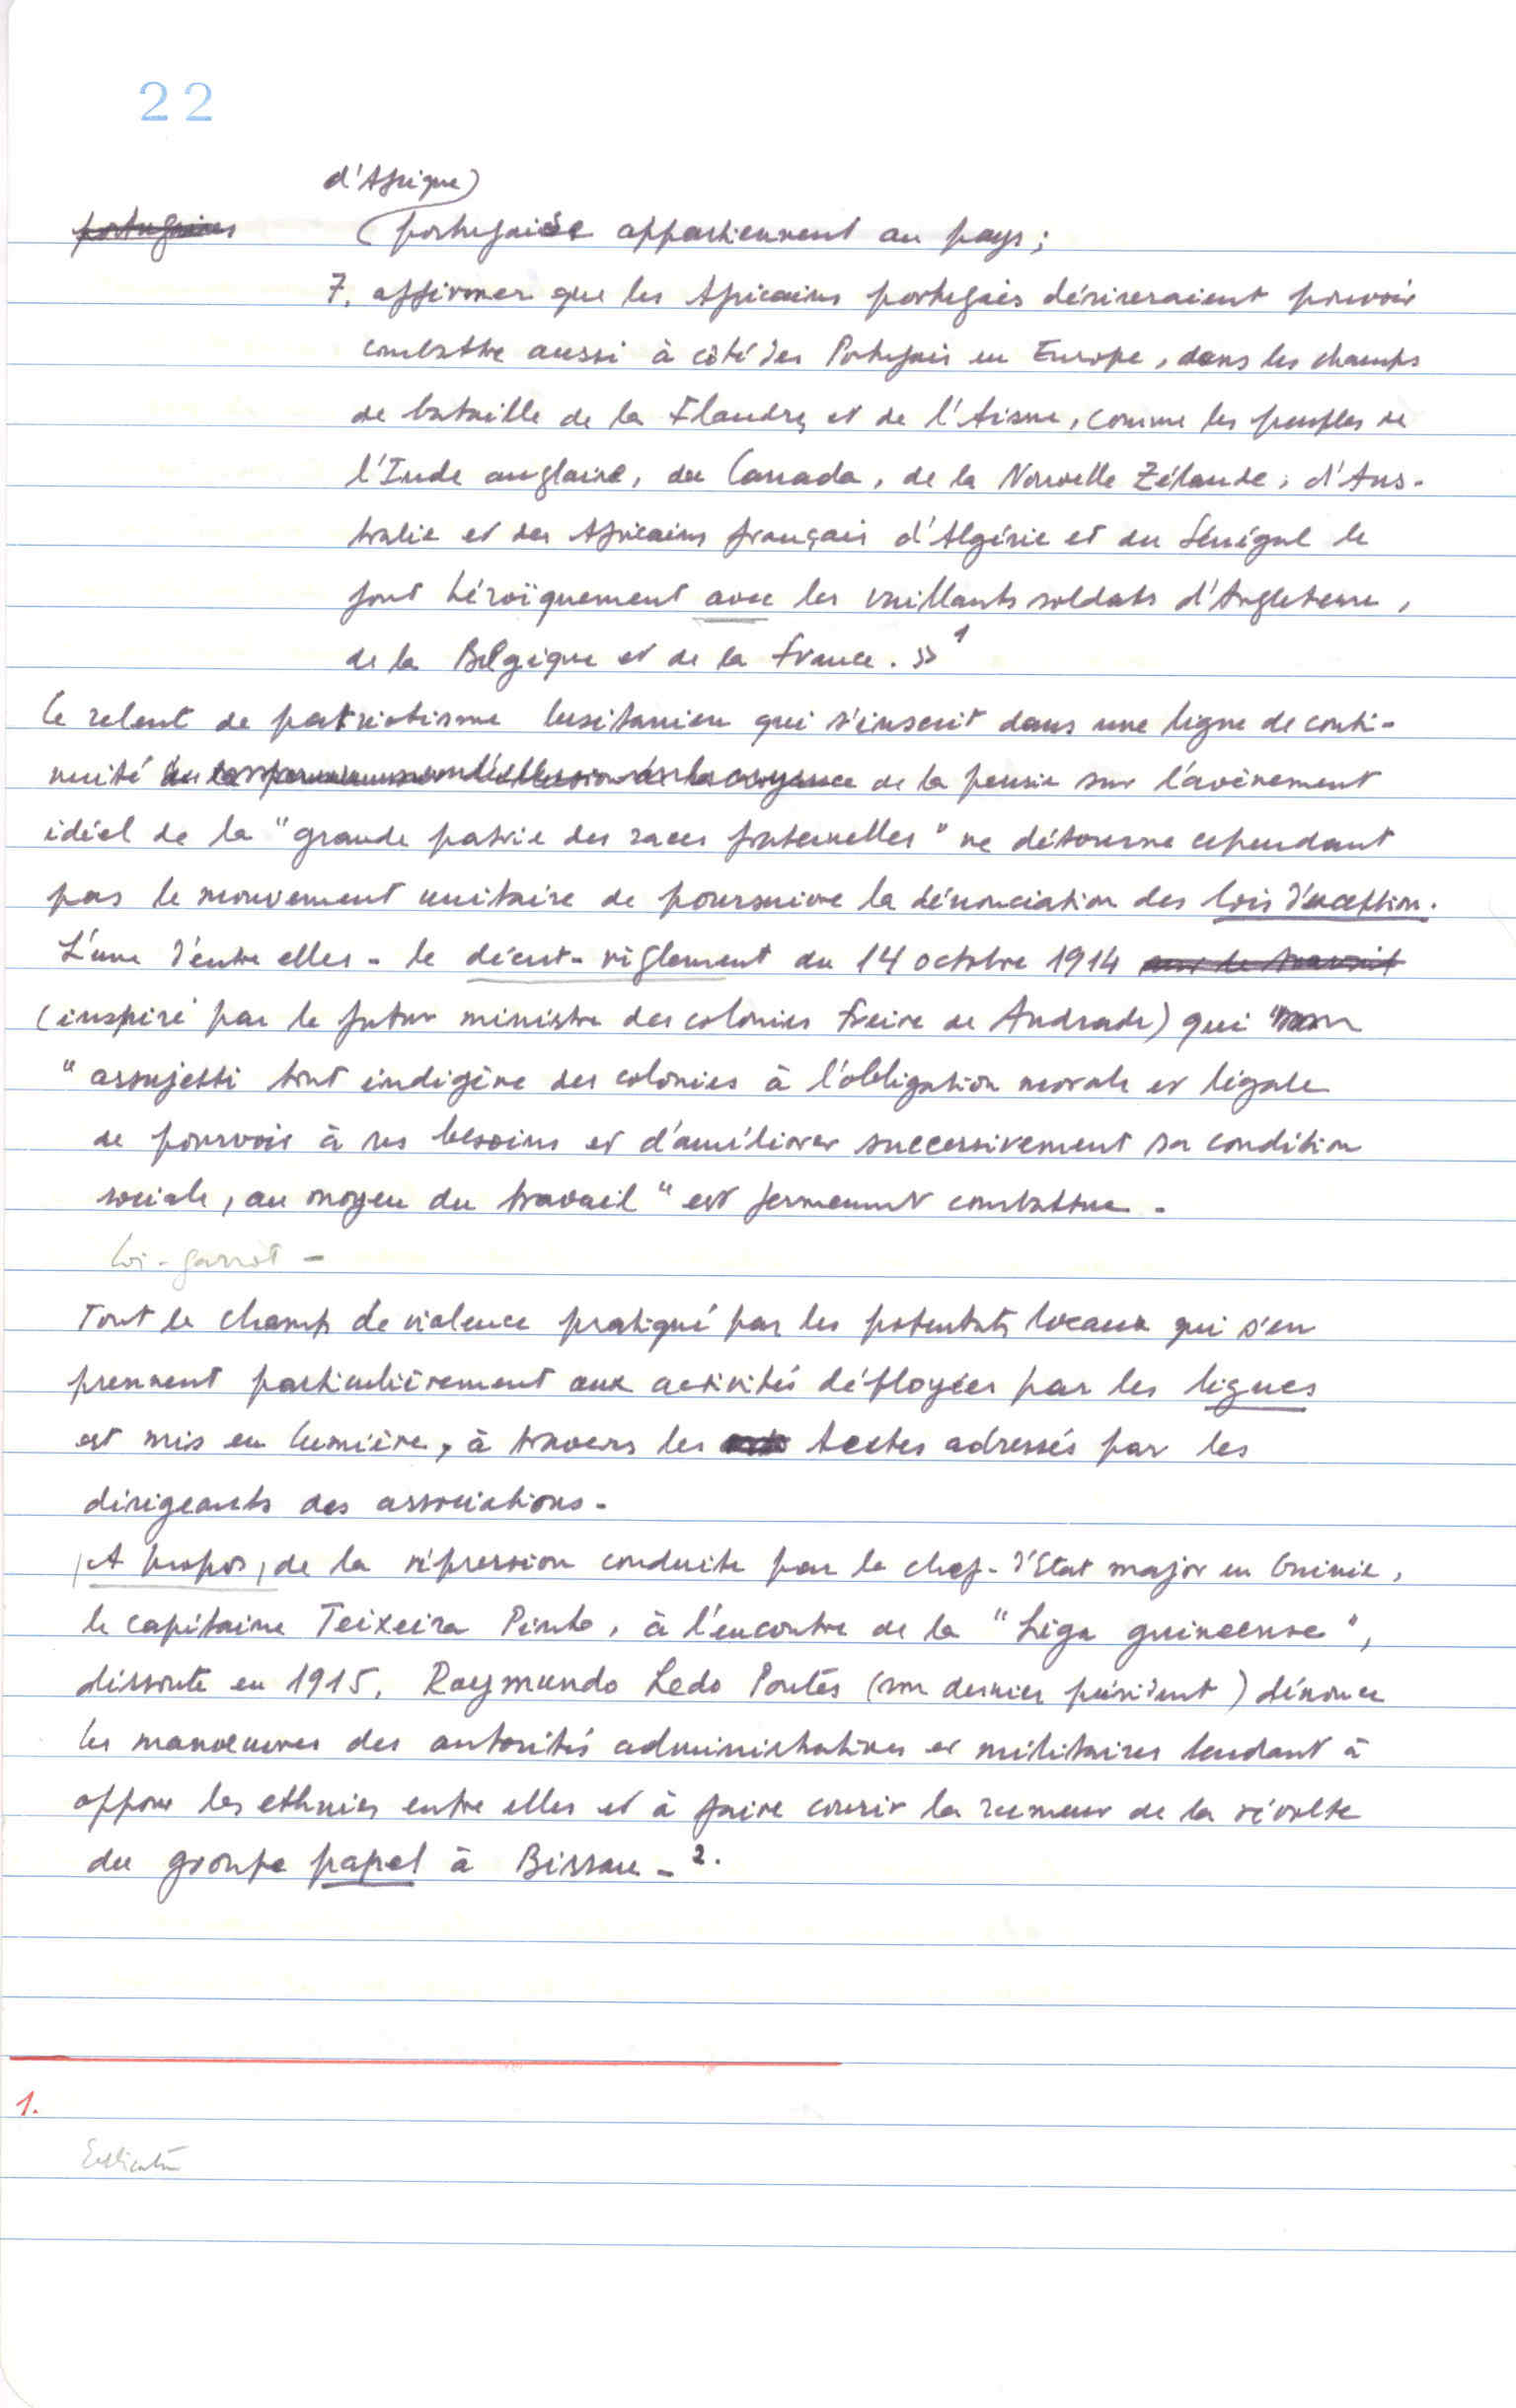 22
d'Afrique)
portugaises (portugaise appartiennent au pays;
7. affirmer que les Africains portugais désireraient pouvoir
combattre aussi à côté des Portugais en Europe, dans les champs
de bataille de la Flandre, et de l'Aisne, comme les peuples de
l'Inde anglaise, du Canada, de la Nouvelle Zélande, d'Aus-
tralie et des Africains français d'Algérie et du Sénégal le
font héroïquement avec les vaillants soldats d'Angleterre,
de la Belgique et de la France. »1
Ce relent de patriotisme lusitanien qui s'inscrit dans une ligne de conti-
nuité de la pensée sur l'avènement
idéel de la "grande patrie des races fraternelles" ne détourne cependant
pas le mouvement unitaire de poursuivre la dénonciation des lois d'exception.
L'une d'entre elles - le décret-règlement du 14 octobre 1914 sur le travail
(inspiré par le futur ministre des colonies Freire de Andrade) qui
"assujetti tout indigène des colonies à l'obligation morale et légale
de pourvoir à ses besoins et d'améliorer successivement sa condition
sociale, au moyen du travail" est fermement combattue.
Loi-garrot -
Tout le champ de violence pratiqué par les potentats locaux qui s'en
prennent particulièrement aux activités déployées par les ligues
est mis en lumière, à travers les textes adressés par les
dirigeants des associations.
A propos, de la répression conduite par le chef-d'Etat major en Guinée,
le capitaine Teixeira Pinto, à l'encontre de la "Liga guineense",
dissoute en 1915, Raymundo Ledo Pontes (son dernier président) dénonce
les manoeuvres des autorités administratives et militaires tendant à
opposer les ethnies entre elles et à faire courir la rumeur de la révolte
du groupe papel à Bissau - 2.
1.